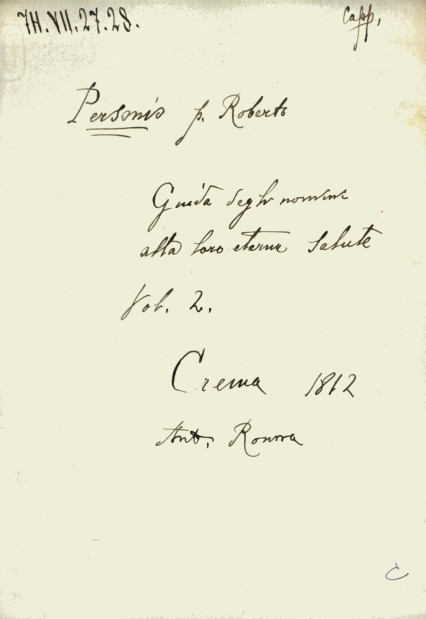 7H.VII.27.28.
Capp.
Personio p. Roberto
Guida degli uomini
alla loro eterna salute
Vol. 2.
Crema 1812
Ant. Ronna
C